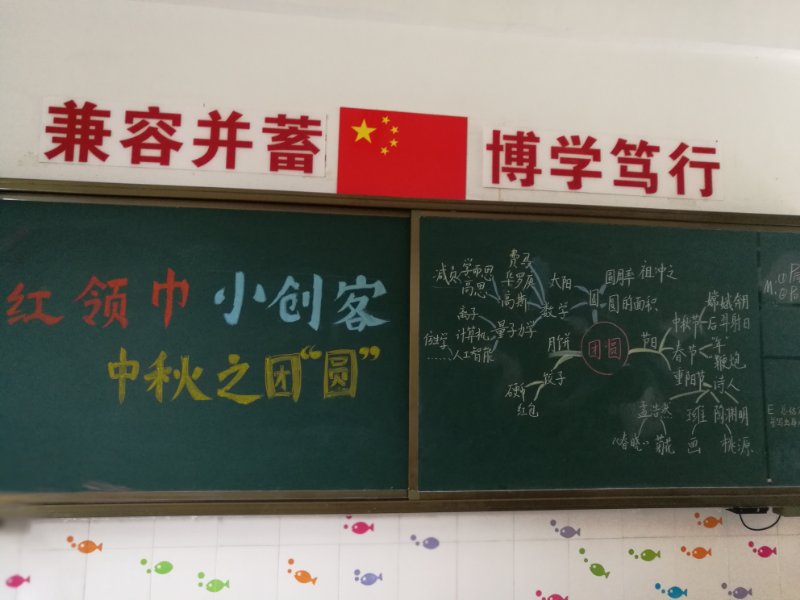 兼容并蓄
博学笃行
红领巾 小创客
中秋之团“圆”
团圆
节日
中秋节
嫦娥
后羿射日
春节
年
鞭炮
重阳节
诗人
孟浩然
《春晓》
菊花
画
陶渊明
桃源
圆
祖冲之
圆的面积
太阳
数学
费马
华罗庚
高斯
高思
学而思
量子力学
离子
计算机
人工智能
月饼
饺子
硬币
红包